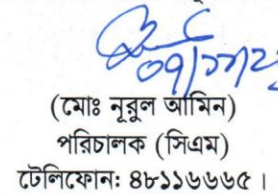 (মোঃ নূরুল আমিন)
পরিচালক (সিএম)
টেলিফোন: ৪৮১১৬৬৬৫।